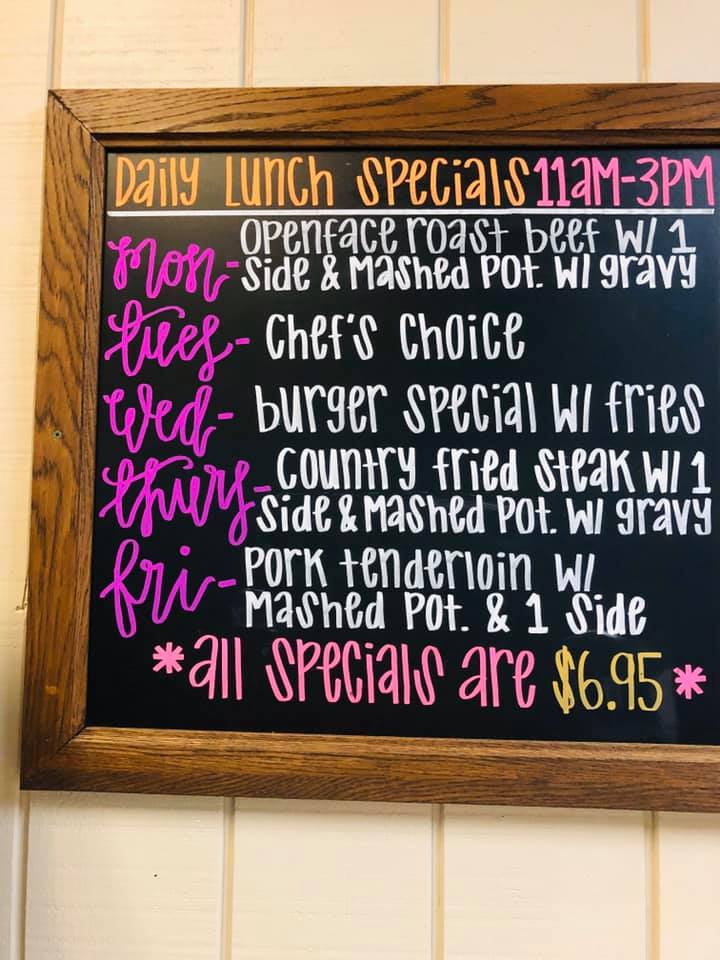 Daily Lunch Specials 11am-3pm
mon- Openface roast beef w/ 1
Side & Mashed Pot. w/ gravy
tues- Chef's Choice
wed- burger special w/ fries
thurs- Country fried Steak w/ 1
Side & Mashed Pot. w/ gravy
fri- Pork tenderloin w/
Mashed Pot. & 1 Side
*all specials are $6.95*